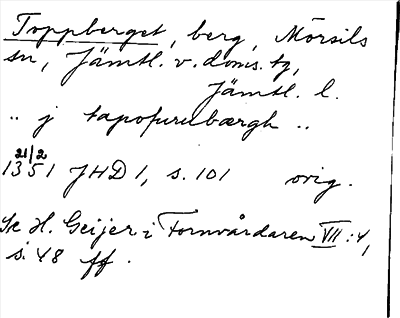 Toppberget, berg, Mörsils
sn, Jämtl. v. doms. tg,
Jämtl. l.
.. j tapofurubærgh ..
21/2
1351 JHD 1, s. 101 orig.
Se H. Geijer i Fornvårdaren VII:4,
s. 48 ff.